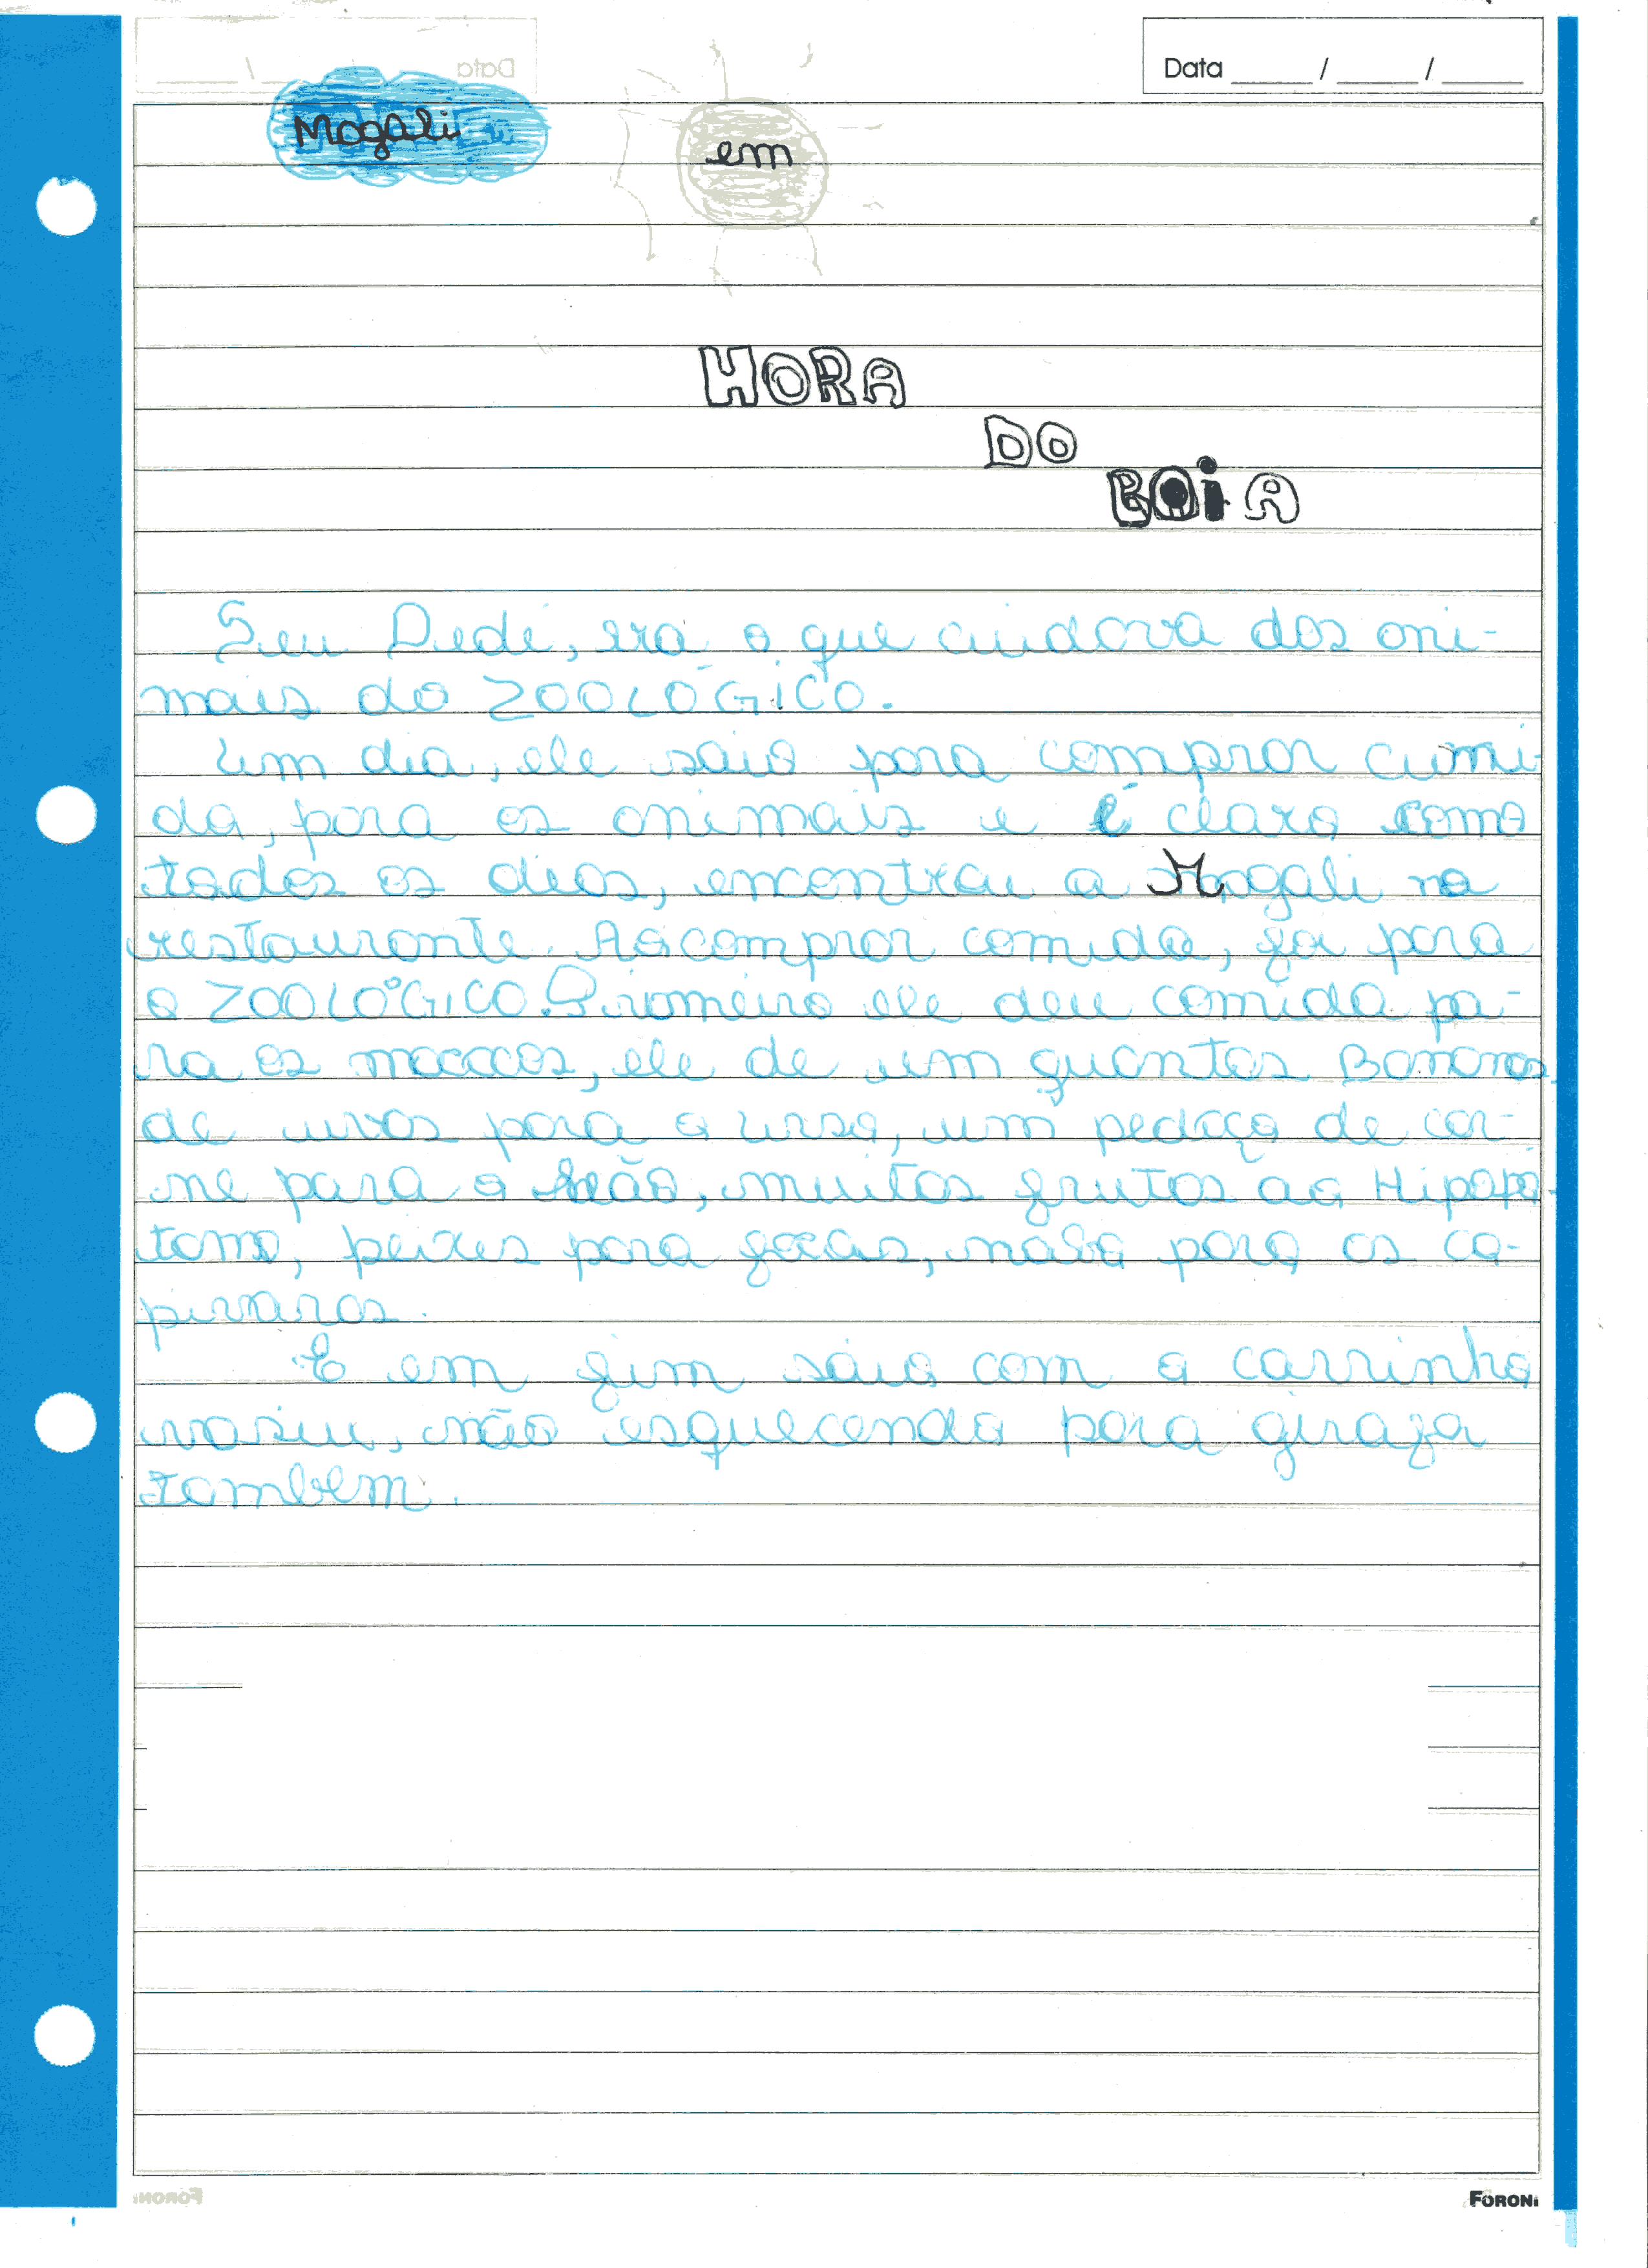 Data ___ / ___ / ___
Magali em
HORA
DO
BOiA
Seu Dedé, era o que cuidava dos ani-
mais do ZOOLÓGiCO.
Um dia, ele saio para comprar cumi-
da, para os animais e é claro como
todos os dias, encontrou a Magali no
restaurante. Ao comprar comida, foi para
o ZOOLÓGICO. Priomeiro ele deu comida pa-
ra os macacos, ele de um quantas Bananas,
de uvas para o urso, um pedaço de car-
ne para o leão, muitas frutas ao Hipopó-
tamo, peixes para focas, nabo para os ca-
pivaras.
E em fim saio com o carrinho
vasiu, não esquecendo para girafa
tambem.
FORONI